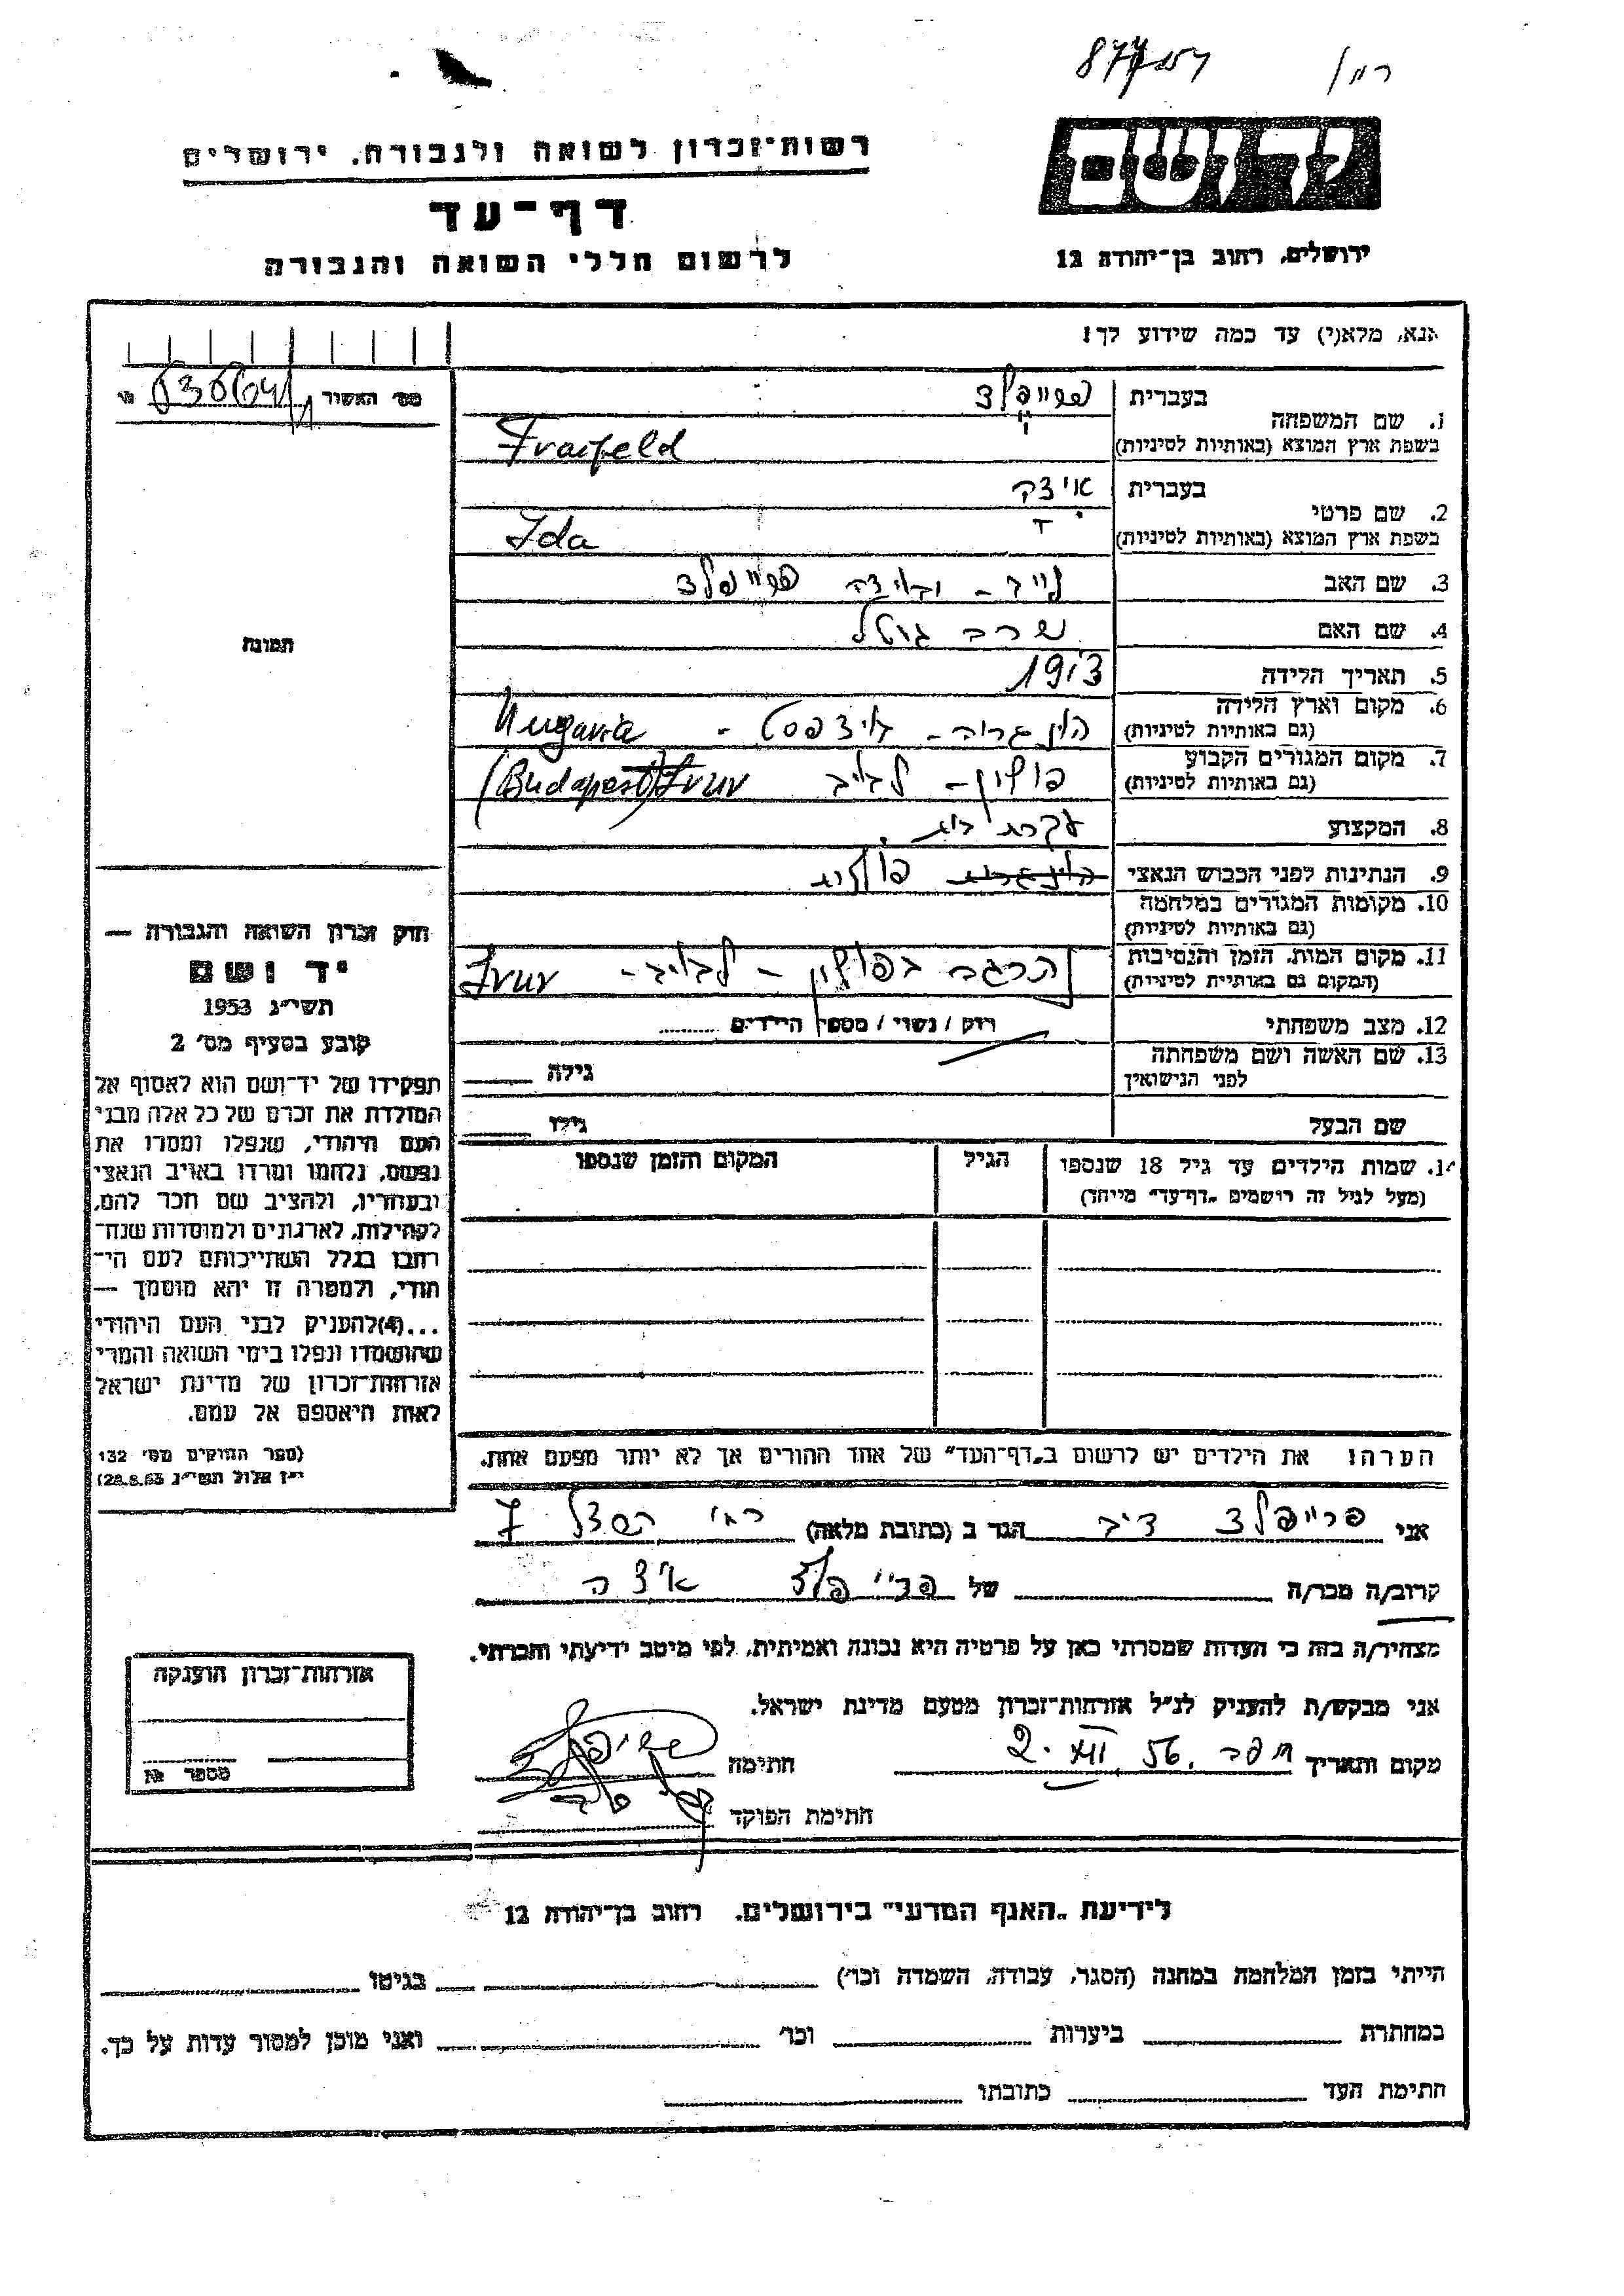 רשות־זכרון לשואה ולגבורה, ירושלים
דף־עד
לרשום חללי השואה והגבורה
ידושם
ירושלים, רחוב בן־יהודה 12
אנא, מלא(י) עד כמה שידוע לך!
מס׳ האשור
1. שם המשפחה בעברית פרייפלד
בשפת ארץ המוצא (באותיות לטיניות) Fraifeld
2. שם פרטי בעברית אידה
בשפת ארץ המוצא (באותיות לטיניות) Ida
3. שם האב פרייפלד
4. שם האם
5. תאריך הלידה
6. מקום וארץ הלידה
(גם באותיות לטיניות) Hugaria
7. מקום המגורים הקבוע פולין - לבוב
(גם באותיות לטיניות) (Budapest) Lvuv
8. המקצוע עקרת בית.
9. הנתינות לפני הכבוש הנאצי פולנית
10. מקומות המגורים במלחמה
(גם באותיות לטיניות)
11. מקום המות, הזמן והנסיבות נהרגה בפולין - לבוב - Lvuv
(המקום גם באותיות לטיניות)
12. מצב משפחתי רוק / נשוי / מספר הילדים
13. שם האשה ושם משפחתה
לפני הנישואין גילה
שם הבעל גילו
14. שמות הילדים עד גיל 18 שנספו
(מעל לגיל זה רושמים „דף־עד״ מיוחד)
הגיל
המקום והזמן שנספו
תמונה
חוק זכרון השואה והגבורה —
יד ושם
תשי״ג 1953
קובע בסעיף מס׳ 2
תפקידו של יד־ושם הוא לאסוף אל
המולדת את זכרם של כל אלה מבני
העם היהודי, שנפלו ומסרו את
נפשם, נלחמו ומרדו באויב הנאצי
ובעוזריו, ולהציב שם וזכר להם,
לקהילות, לארגונים ולמוסדות שנח־
רבו בגלל השתייכותם לעם הי־
הודי, ולמטרה זו יהא מוסמך —
...(4) להעניק לבני העם היהודי
שהושמדו ונפלו בימי השואה והמרי
אזרחות־זכרון של מדינת ישראל
לאות היאספם אל עמם.
(ספר החוקים מס׳ 132
י״ז אלול תשי״ג 28.8.53)
הערה: את הילדים יש לרשום ב„דף־העד״ של אחד ההורים אך לא יותר מפעם אחת.
אני פרייפלד הגר ב (כתובת מלאה) 7
קרוב/ה מכר/ה של פרייפלד אידה
מצהיר/ה בזה כי העדות שמסרתי כאן על פרטיה היא נכונה ואמיתית, לפי מיטב ידיעתי והכרתי.
אני מבקש/ת להעניק לנ״ל אזרחות־זכרון מטעם מדינת ישראל.
מקום ותאריך 2. XII 56. חתימה
חתימת הפוקד
אזרחות־זכרון הוענקה
מספר №
לידיעת „האגף המדעי״ בירושלים, רחוב בן־יהודה 12
הייתי בזמן המלחמה במחנה (הסגר, עבודה, השמדה וכו׳) בגיטו
במחתרת ביערות וכו׳ ואני מוכן למסור עדות על כך.
חתימת העד כתובתו